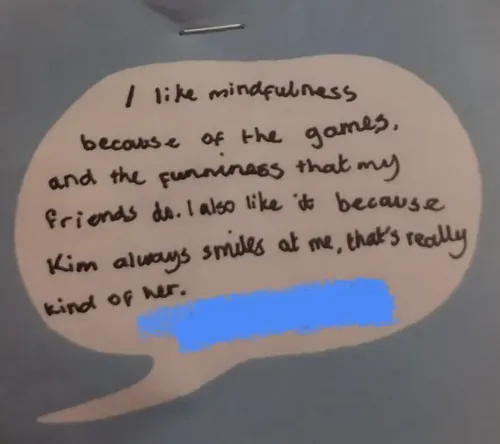 I like mindfulness
because of the games,
and the funniness that my
friends do. I also like it because
Kim always smiles at me, that's really
kind of her.